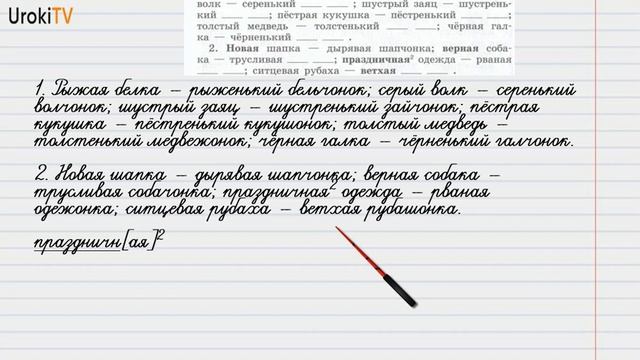 UrokiTV
волк — серенький ___ ___ ; шустрый заяц — шустрень-
кий ___ ___ ; пёстрая кукушка — пёстренький ___ ___ ;
толстый медведь — толстенький ___ ___ ; чёрная гал-
ка — чёрненький ___ ___ .
2. Новая шапка — дырявая шапчонка; верная соба-
ка — трусливая ___ ___ ; праздничная² одежда — рваная
___ ___ ; ситцевая рубаха — ветхая ___ ___ .
1. Рыжая белка – рыженький бельчонок; серый волк – серенький
волчонок; шустрый заяц – шустренький зайчонок; пёстрая
кукушка – пёстренький кукушонок; толстый медведь –
толстенький медвежонок; чёрная галка – чёрненький галчонок.
2. Новая шапка – дырявая шапчонка; верная собака –
трусливая собачонка; праздничная² одежда – рваная
одежонка; ситцевая рубаха – ветхая рубашонка.
праздничн[ая]²